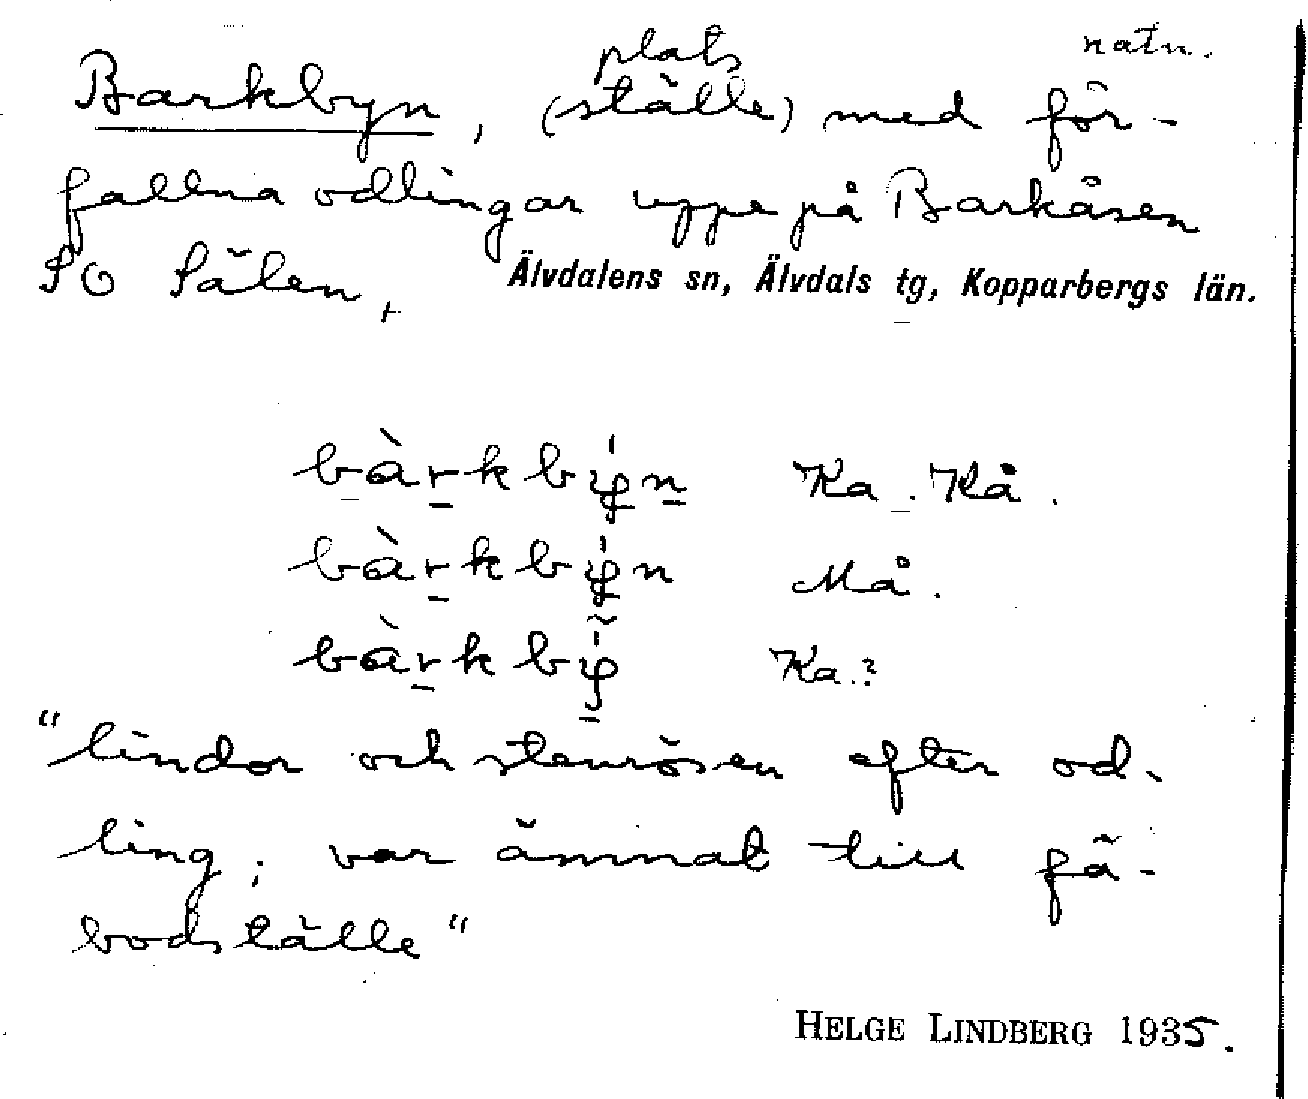 natn.
plats
Barkbyn, (ställe) med för-
fallna odlingar uppe på Barkåsen
SO Sälen, Älvdalens sn, Älvdals tg, Kopparbergs län.
bàrkby̍n Ka. Kå.
bàrkby̍n Må.
bàrkbỹ Ka.?
"lindor och stenrösen efter od-
ling; var ämnat till fä-
bodställe"
HELGE LINDBERG 1935.